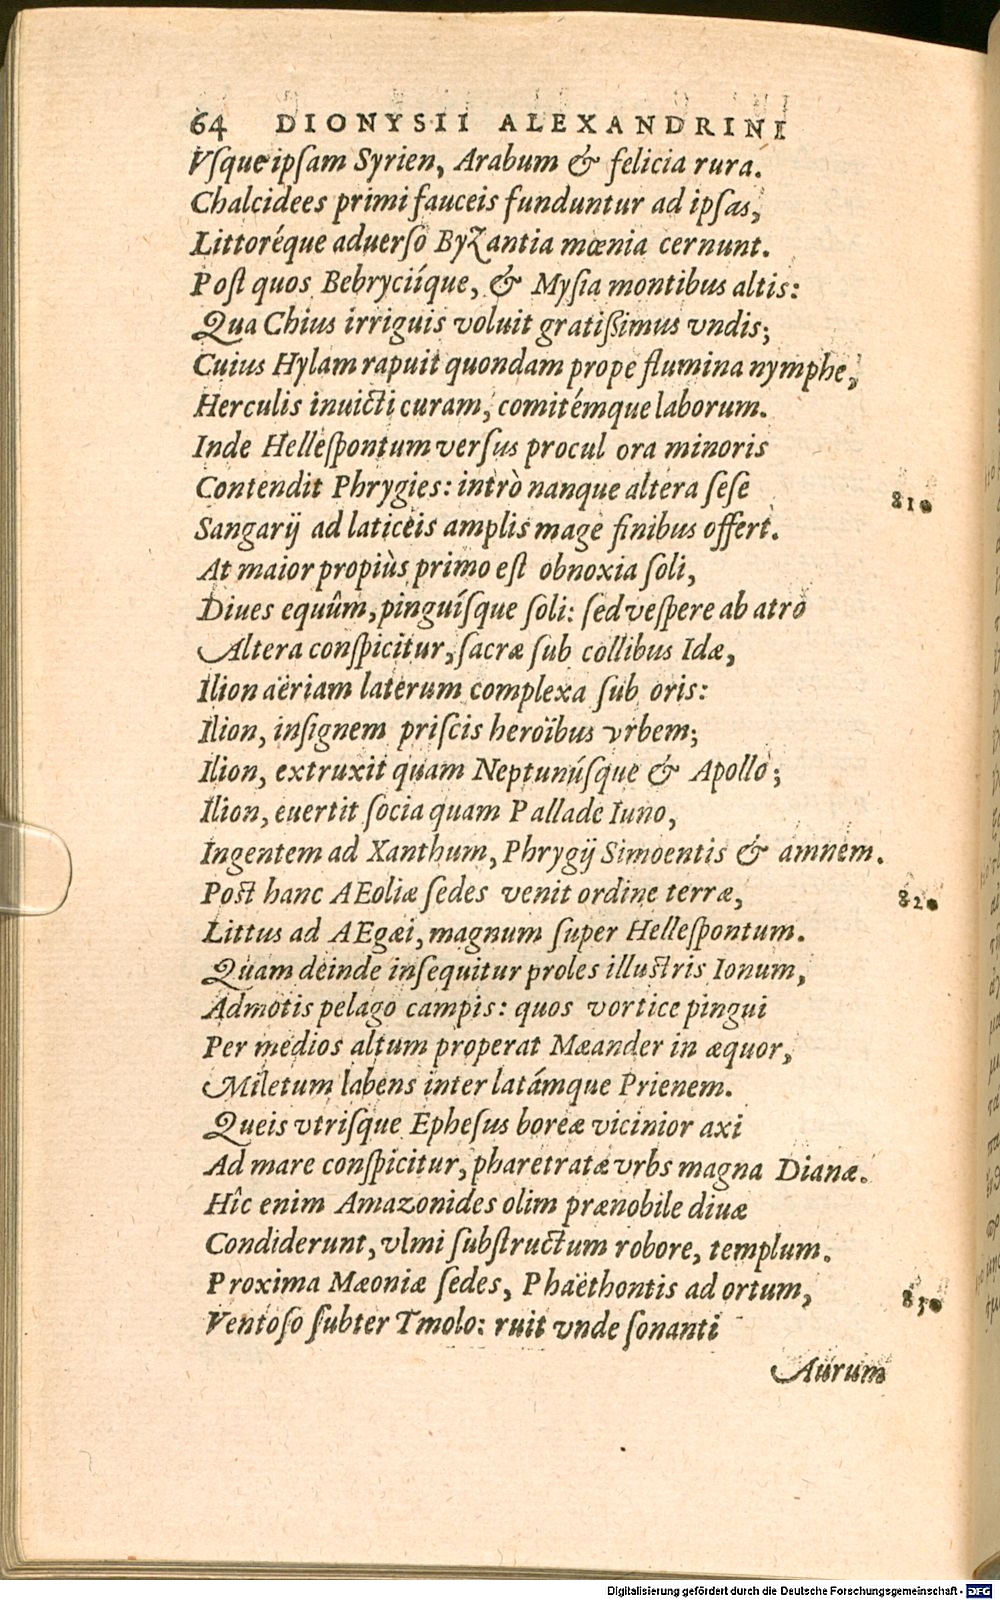 64 DIONYSII ALEXANDRINI
Vſque ipſam Syrien, Arabum & felicia rura.
Chalcidees primi fauceis funduntur ad ipſas,
Littoréque aduerſo ByZantia mœnia cernunt.
Poſt quos Bebryciíque, & Myſia montibus altis:
Qua Chius irriguis voluit gratißimus vndis;
Cuius Hylam rapuit quondam prope flumina nymphe,
Herculis inuicti curam, comitémque laborum.
Inde Helleſpontum verſus procul ora minoris
Contendit Phrygies: intrò nanque altera ſeſe 810
Sangarij ad laticeis amplis mage finibus offert.
At maior propiùs primo eſt obnoxia ſoli,
Diues equûm, pinguíſque ſoli: ſed veſpere ab atro
Altera conſpicitur, ſacræ ſub collibus Idæ,
Ilion aëriam laterum complexa ſub oris:
Ilion, inſignem priſcis heroïbus vrbem;
Ilion, extruxit quam Neptunúſque & Apollo;
Ilion, euertit ſocia quam Pallade Iuno,
Ingentem ad Xanthum, Phrygij Simoentis & amnem.
Poſt hanc AEoliæ ſedes venit ordine terræ, 820
Littus ad AEgæi, magnum ſuper Helleſpontum.
Quam deinde inſequitur proles illuſtris Ionum,
Admotis pelago campis: quos vortice pingui
Per medios altum properat Mæander in æquor,
Miletum labens inter latámque Prienem.
Queis vtriſque Epheſus boreæ vicinior axi
Ad mare conſpicitur, pharetratæ vrbs magna Dianæ.
Hîc enim Amazonides olim prænobile diuæ
Condiderunt, vlmi ſubſtructum robore, templum.
Proxima Mæoniæ ſedes, Phaëthontis ad ortum, 830
Ventoſo ſubter Tmolo: ruit vnde ſonanti
Aurum
Digitalisierung gefördert durch die Deutsche Forschungsgemeinschaft - DFG